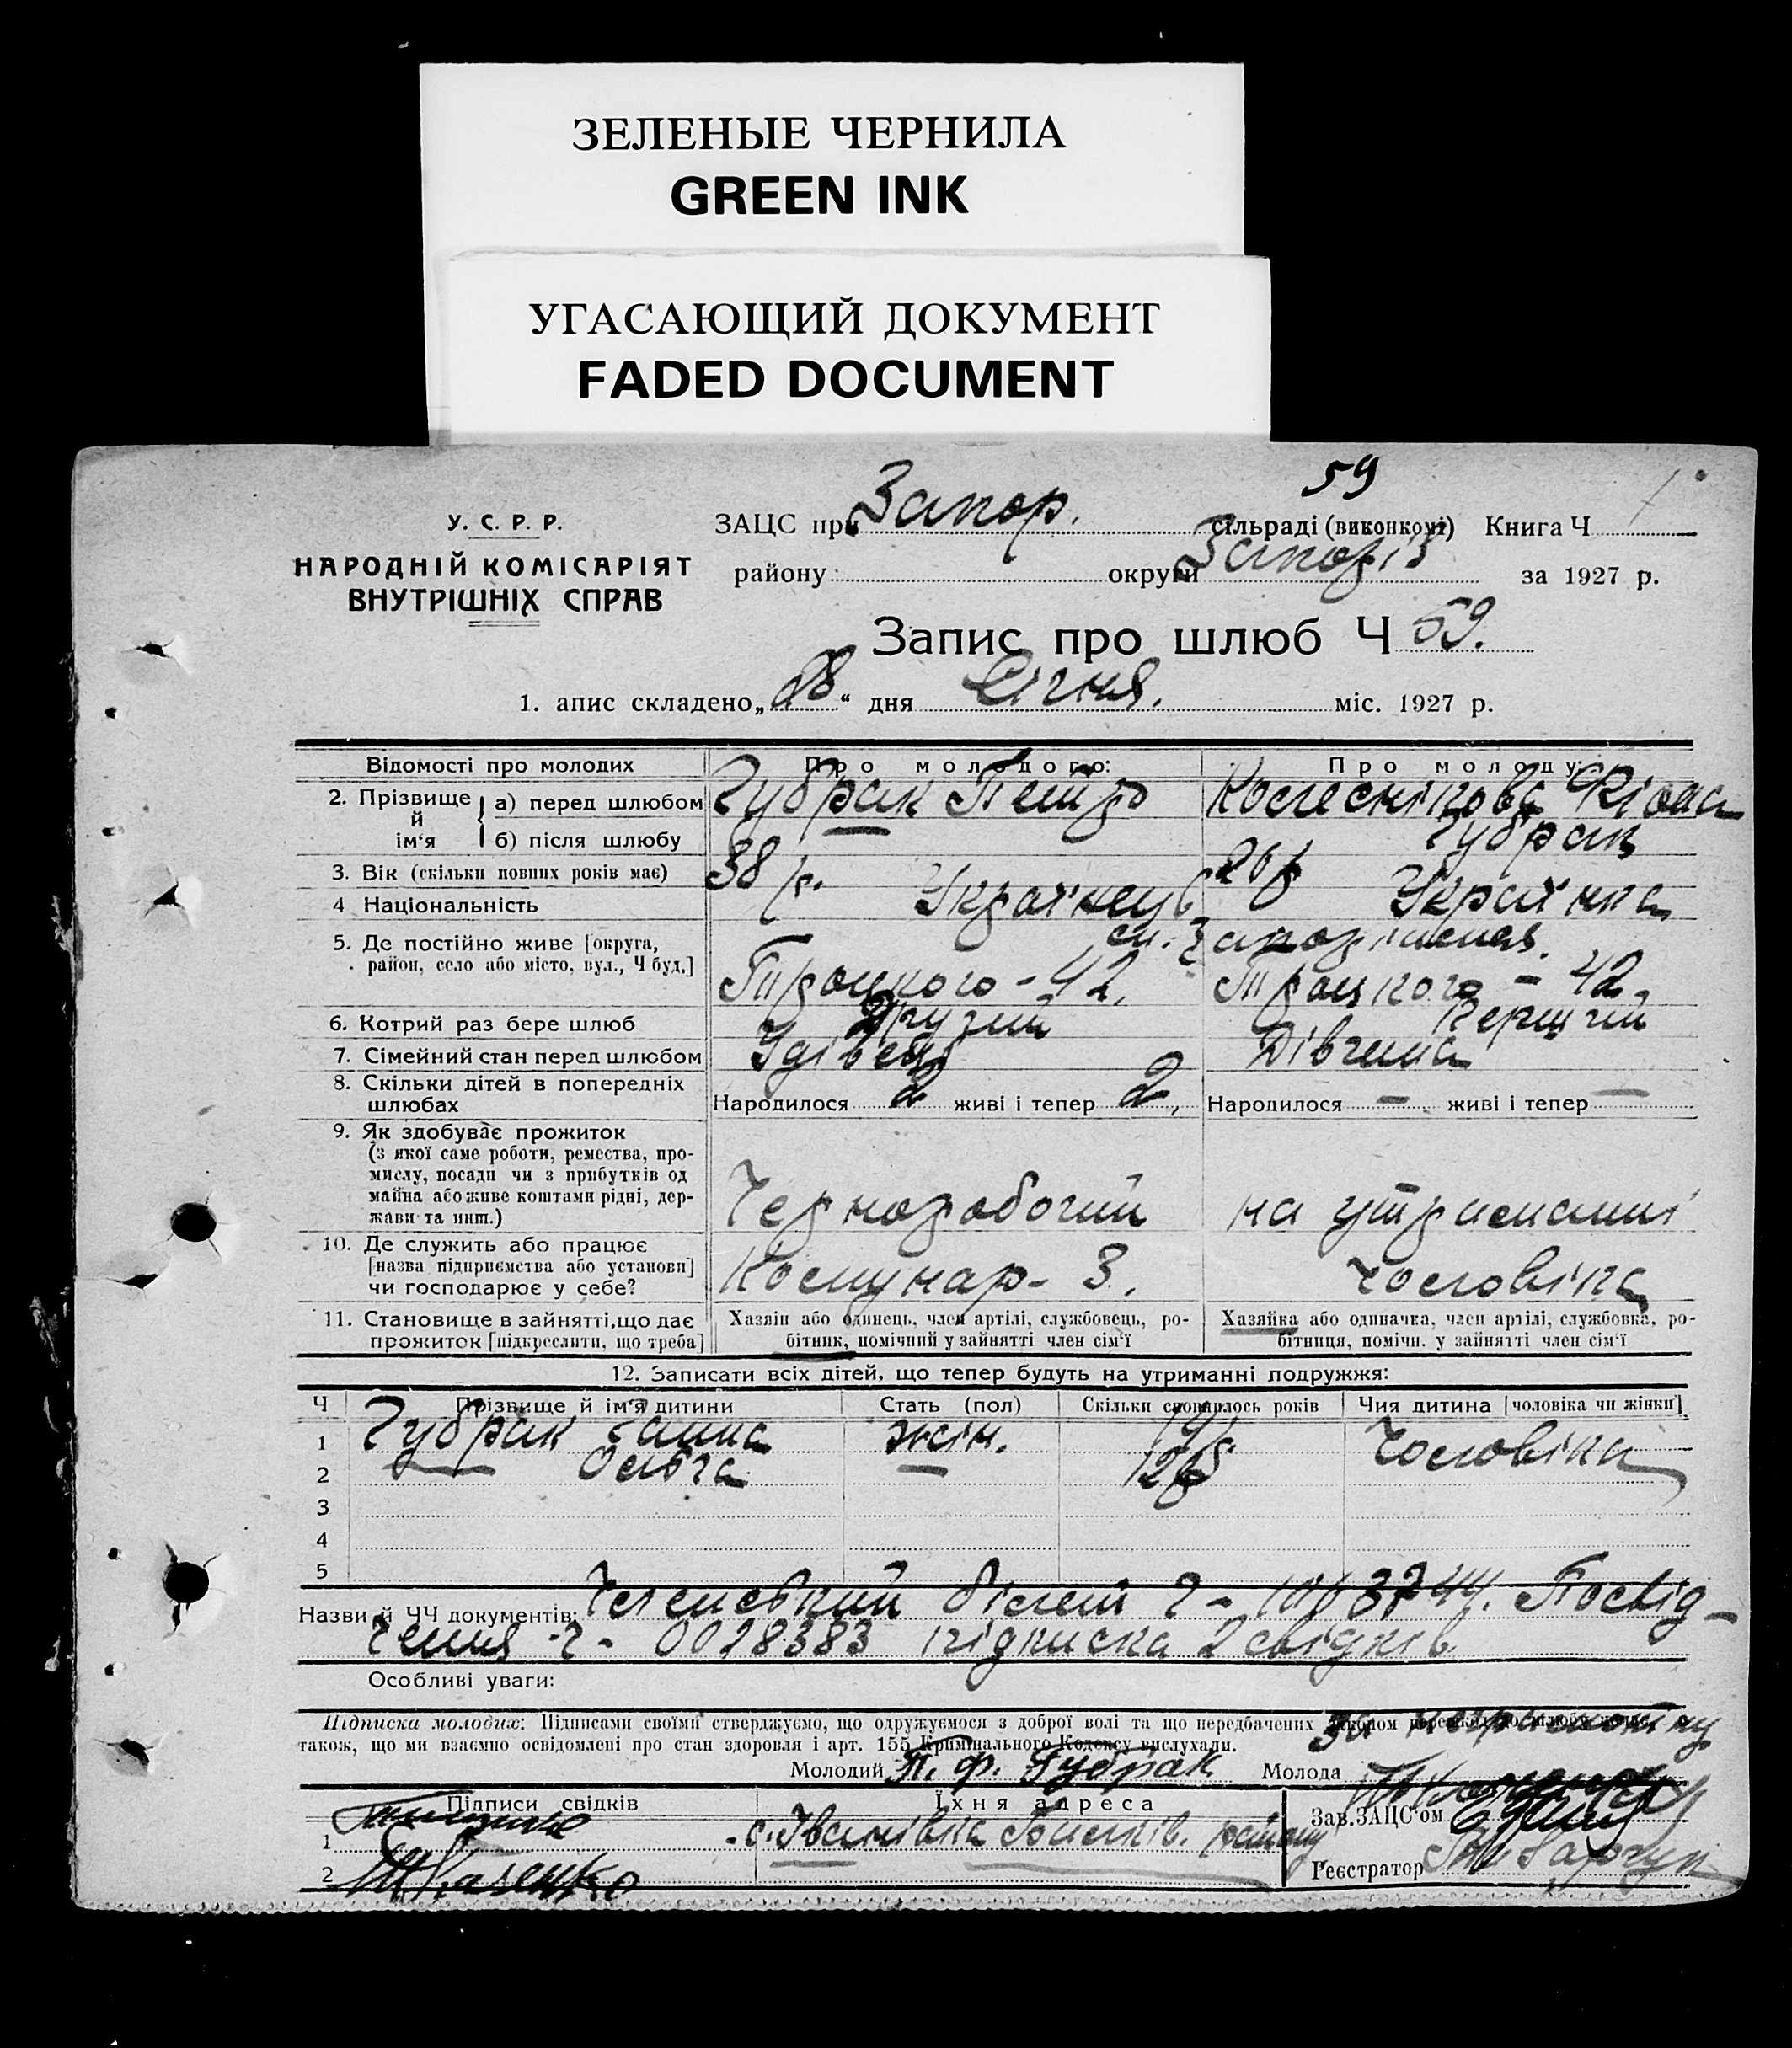 ЗЕЛЕНЫЕ ЧЕРНИЛА
GREEN INK
УГАСАЮЩИЙ ДОКУМЕНТ
FADED DOCUMENT
59
У. С. Р. Р.
НАРОДНІЙ КОМІСАРІЯТ
ВНУТРІШНІХ СПРАВ
ЗАЦС при Запор. сільраді (виконкомі) Книга Ч
району округи Запоріз за 1927 р.
Запис про шлюб Ч 59.
1. апис складено „28“ дня Січня. міс. 1927 р.
Відомості про молодих Про молодого: Про молоду:
2. Прізвище й ім'я а) перед шлюбом Губрак Петро Колеснікова
б) після шлюбу Губрак
3. Вік (скільки повних років має) 38 р. 26 р
4 Національність Українець Українка
5. Де постійно живе [округа, ст. Запоріжжя.
район, село або місто, вул., Ч буд.] Троцкого - 42, Троцкого - 42.
6. Котрий раз бере шлюб Другий Перший
7. Сімейний стан перед шлюбом Удівець Дівчина
8. Скільки дітей в попередніх
шлюбах Народилося 2 живі і тепер 2, Народилося — живі і тепер —
9. Як здобуває прожиток
(з якої саме роботи, ремества, про-
мислу, посади чи з прибутків од
майна або живе коштами рідні, дер-
жави та инш.) Черноробочий на утриманні
10. Де служить або працює
[назва підприємства або установи]
чи господарює у себе? Комунар - 3. Чоловіка
11. Становище в зайнятті, що дає Хазяін або одинець, член артілі, службовець, ро- Хазяйка або одиначка, член артілі, службовка, ро-
прожиток [підкреслити, що треба] бітник, помічний у зайнятті член сім'ї бітниця, помічн. у зайнятті член сім'ї
12. Записати всіх дітей, що тепер будуть на утриманні подружжя:
Ч Прізвище й ім'я дитини Стать (пол) Скільки сповнилось років Чия дитина [чоловіка чи жінки]
1 Губрак Ганна жін. Чоловіка
2 — Ольга — 12 р
3
4
5
Назви й ЧЧ документів: Членський білет Ч - Посвід-
чення Ч - 0028383 підписка 2 свідків
Особливі уваги:
Підписка молодих: Підписами своїми стверджуємо, що одружуємося з доброї волі та що передбачених законом перешкод до шлюбу
також, що ми взаємно освідомлені про стан здоровля і арт. 155 Кримінального Кодексу вислухали. За неграмотну
Молодий П. Ф. Губрак Молода
Підписи свідків Їхня адреса Зав. ЗАЦС'ом
1 с. Іванівка району
2 Реєстратор